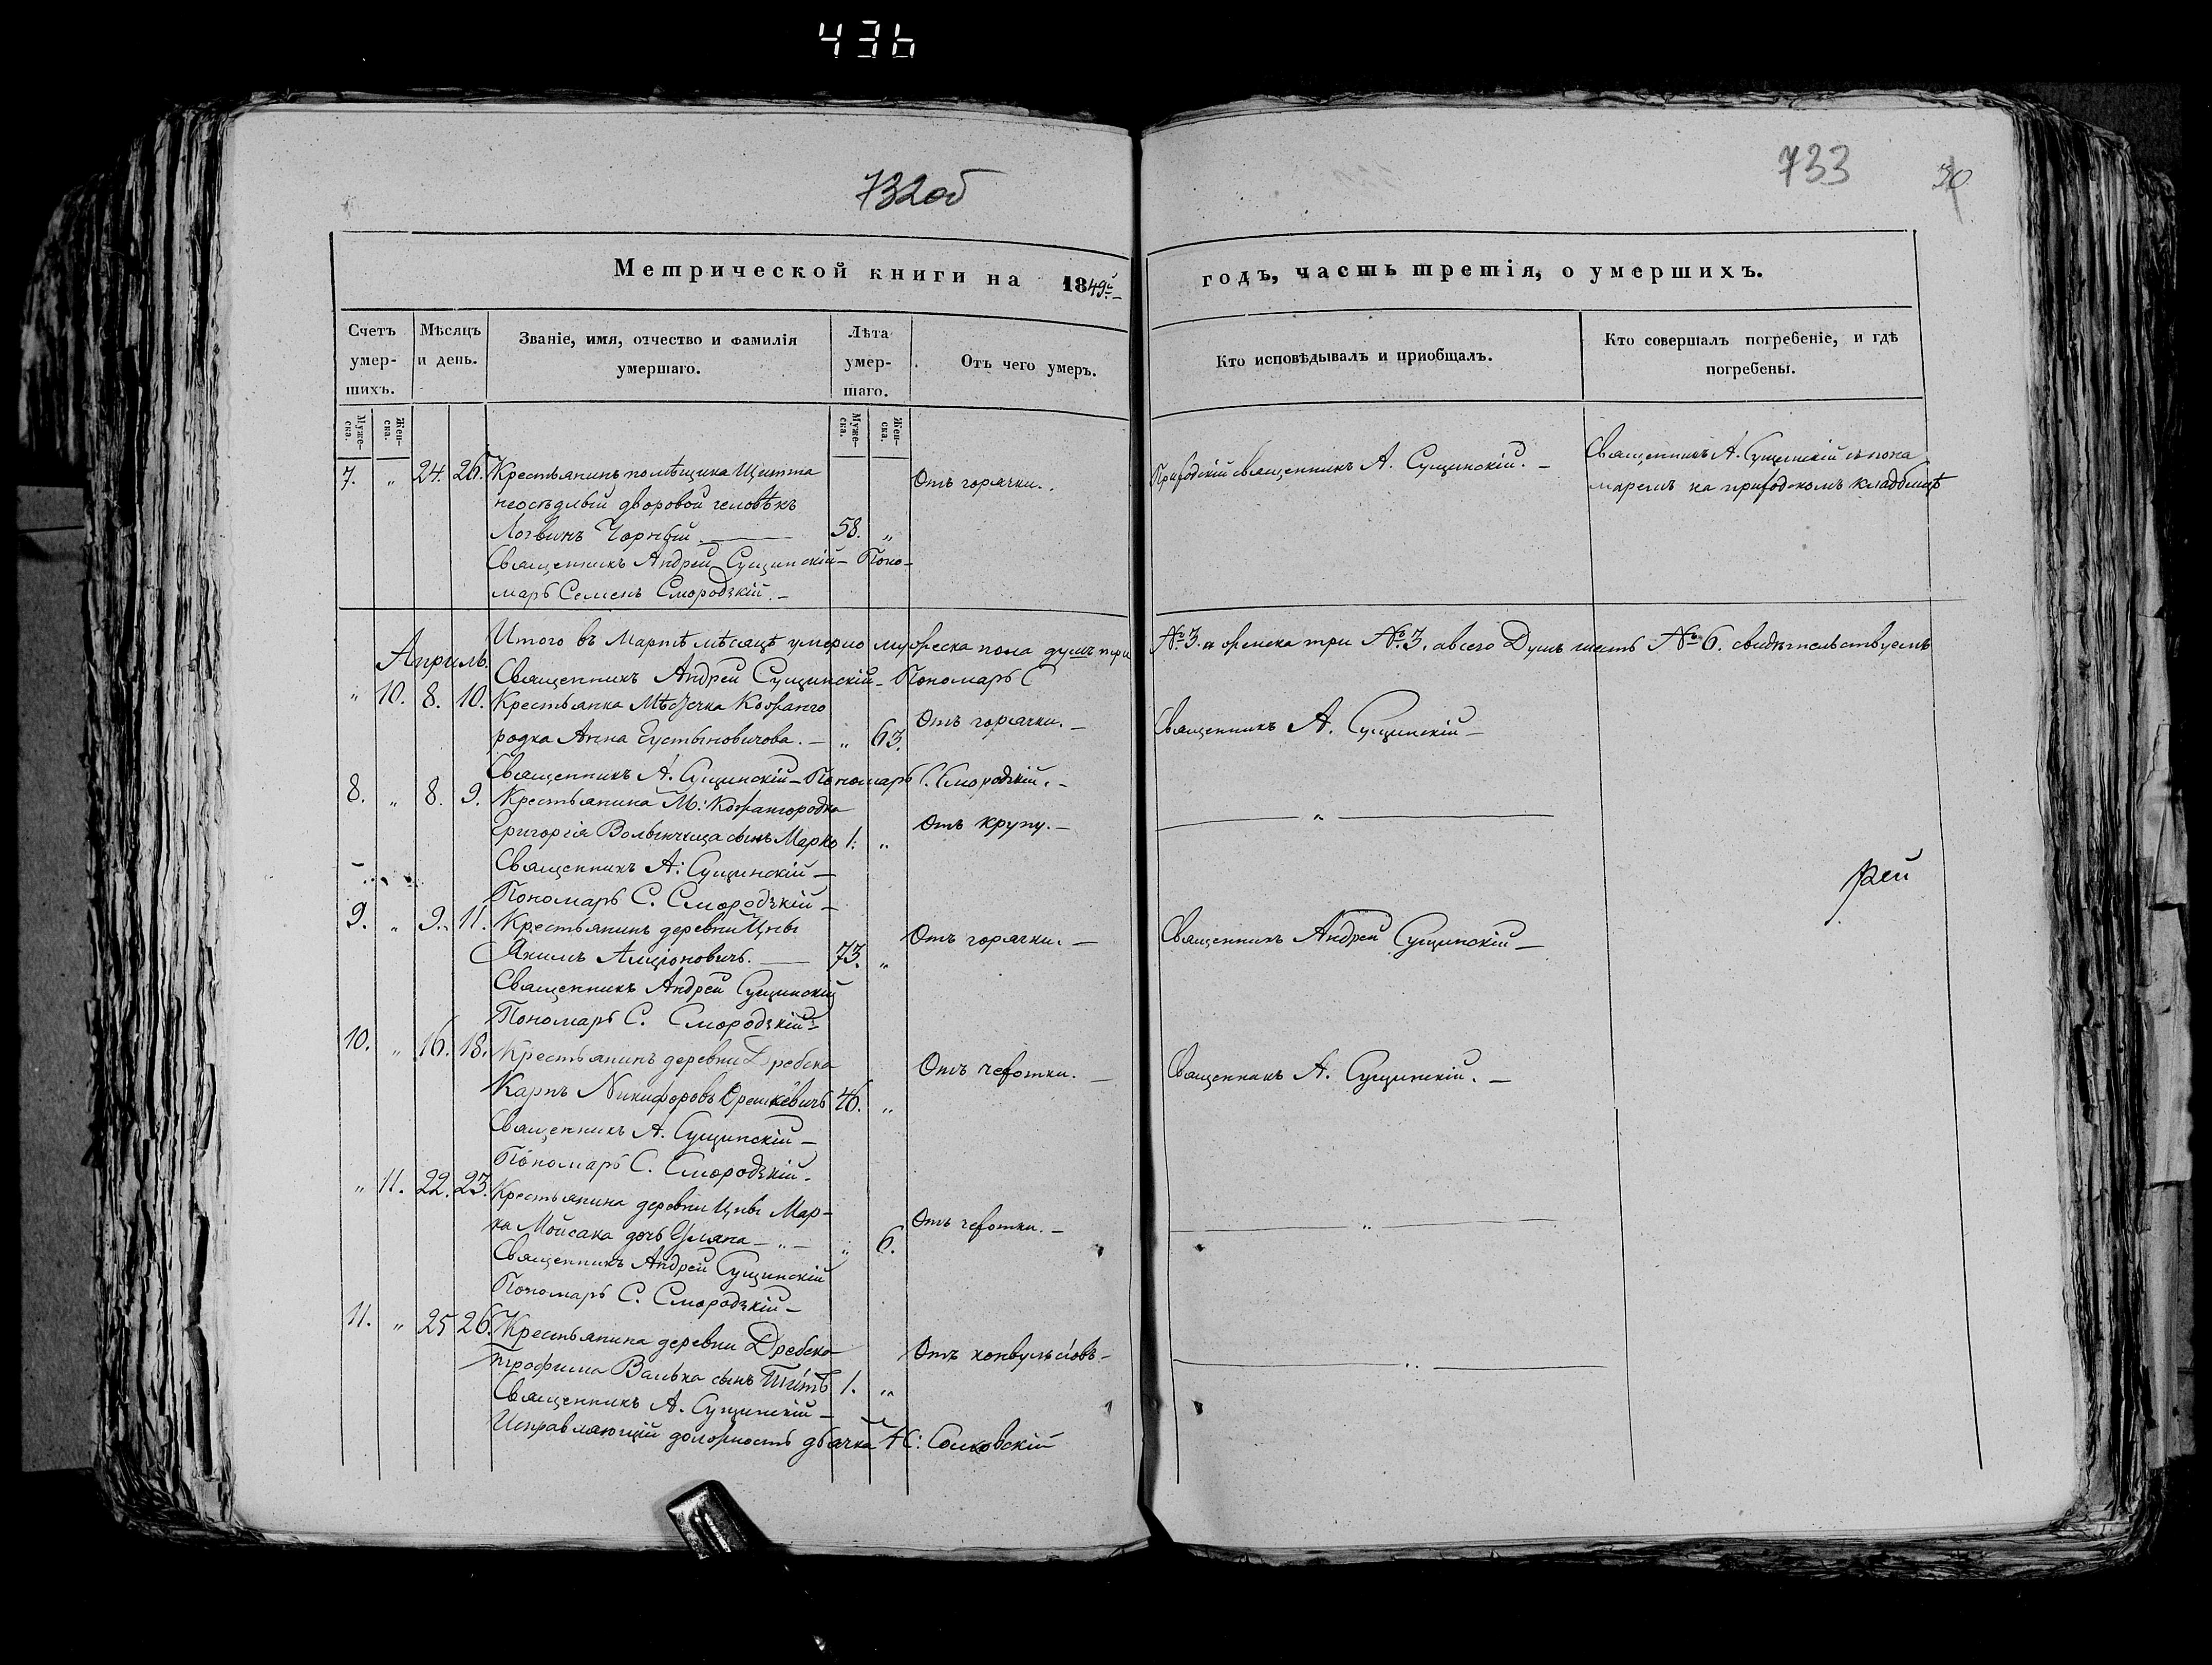 436
732об
733
Метрической книги на 1849й
годъ, часть третія, о умершихъ.
Счетъ умер-шихъ.
Мѣсяцъ и день.
Званіе, имя, отчество и фамилія
умершаго.
Лѣта умер-шаго.
Отъ чего умеръ.
Кто исповѣдывалъ и приобщалъ.
Кто совершалъ погребеніе, и гдѣ
погребены.
Муже-ска.
Жен-ска.
Муже-ска.
Жен-ска.
7. „ 24. 26. Крестьянинъ помѣщика Щитта
неосѣдлый дворовой человѣкъ
Логвинъ Чорный. 58. „
Отъ горячки.
Приходскій священникъ А. Сущинскій. –
Священникъ А. Сущинскій съ поно
маремъ на приход-комъ кладбищѣ
Священникъ Андрей Сущинскій – Поно-
марь Семенъ Смородзкій. –
Итого въ Мартѣ мѣсяцѣ умерло мужеска пола душъ три
№ 3. а женска три № 3. авсего Душъ шесть № 6. свидѣтельствуемъ
Априлъ.
Священникъ Андрей Сущинскій – Пономарь С
„ 10. 8. 10. Крестьянка Мѣстечка Кожанго
родка Анна Густыновичова. – „ 63.
Отъ горячки. –
Священникъ А. Сущинскій –
Священникъ А. Сущинскій – Пономарь С. Смородзкій. –
8. „ 8. 9. Крестьянина М: Кожангородка
Григорія Волынчица сынъ Марко 1. „
Отъ крупу. –
— „ —
Священникъ А: Сущинскій –
Пономарь С. Смородзкій –
рей
9. „ 9. 11. Крестьянинъ деревни Цны
Якимъ. — 73. „
Отъ горячки. –
Священникъ Андрей Сущинскій –
Священникъ Андрей Сущинскій
Пономарь С. Смородзкій –
10. „ 16. 18. Крестьянинъ деревни Дребска
Карпъ Никифоровъ Орешкевичъ 46. „
Отъ чехотки. –
Священникъ А. Сущинскій. –
Священникъ А. Сущинскій –
Пономарь С. Смородзкій.
„ 11. 22. 23. Крестьянина деревни Цны Мар-
ка Мойсака дочь – „ – „ 6.
Отъ чехотки. –
— „ —
Священникъ Андрей Сущинскій
Пономарь С. Смородзкій –
11. „ 25 26. Крестьянина деревни Дребска
Трофима Валька сынъ Титъ 1. „
Отъ конвульсіовъ –
— „ —
Священникъ А. Сущинскій –
Исправляющій должность дьячка С: Сонковскій